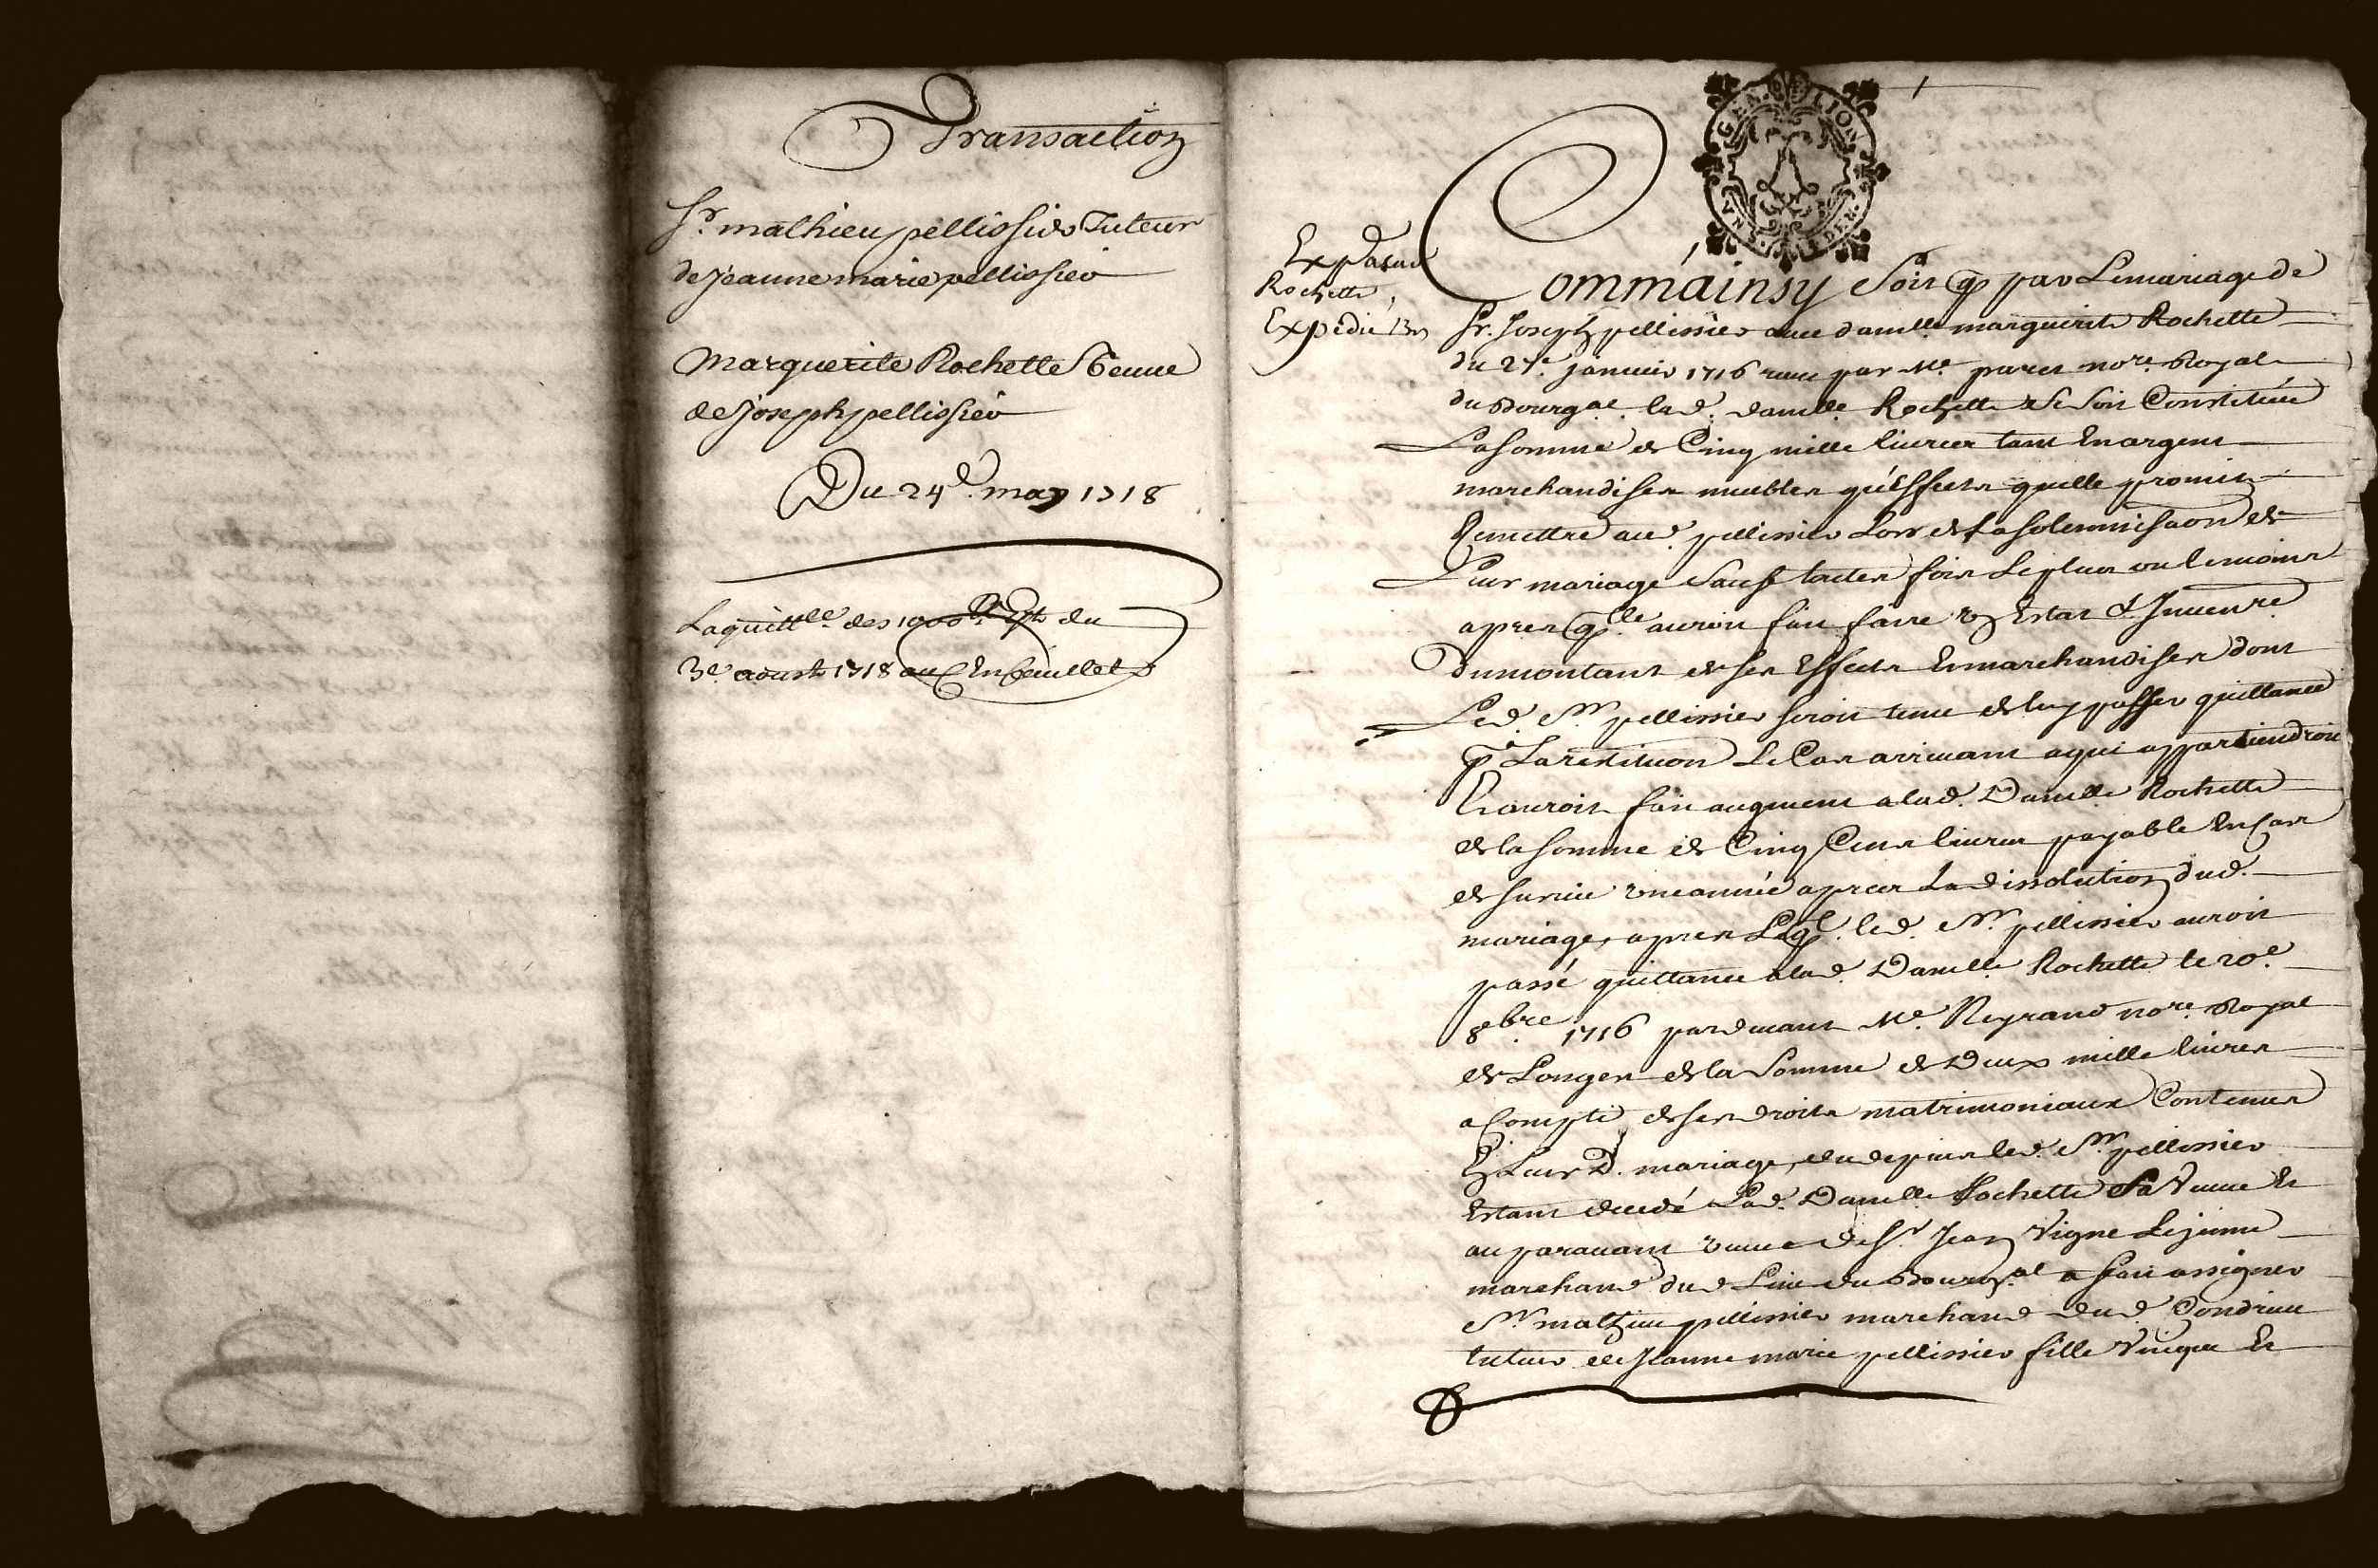 Transaction
Sr. mathieu pellissier Tuteur
de jeanne marie pellissier
Marguerite Rochette Veuue
de joseph pellissier
Du 24e. may 1718
Laquittce. des 1000ll Est du
3e. aoust 1718 au feuillet
GEN. DE LION
Rochette
Expedié
Comm'ainsy Soit q par Le mariage de
Sr. Joseph pellissier auec damlle. marguerite Rochette
du 27e. januier 1716 receu par Me. paret nore. Royal
du Bourgal. lad. damlle. Rochette Se Soit Constituée
La somme de Cinq mille liures tant En argent
marchandises meubles qu'Effects quelle promit
Remettre aud. pellissier Lors de La solemnisaon de
Leur mariage Sauf toutes fois Le plus ou le moins
apres qlle auroit fait faire vn Estat & Inuenre
du montant de ses Effects En marchandises dont
Led. Sr. pellissier seroit tenu de luy passer quittance
p La restituon Le Cas arriuant a qui appartiendroit
Et auroit fait augment a lad. Damlle. Rochette
de la somme de Cinq Cens liures payable En Cas
de suruie vne année apres La dissolution dud.
mariage, apres Leql. led. Sr. pellissier auroit
passé quittance a lad. Damlle. Rochette le 20e.
8bre. 1716 pardeuant Me. Reynaud nore. Royal
de Longes de la Somme de Deux mille liures
a Compte de ses droits matrimoniaux Contenus
En Leurd. mariage, du depuis led. Sr. pellissier
Estant decedé Lad. Damlle. Rochette Sa Veuue Et
au parauant veuue de Sr. Jean Vigne Le jeune
marchand dud. Lieu du Bourgal. a fait assigner
Sr. mathieu pellissier marchand dud. Condrieu
tuteur de Jeanne marie pellissier fille Vnique Et